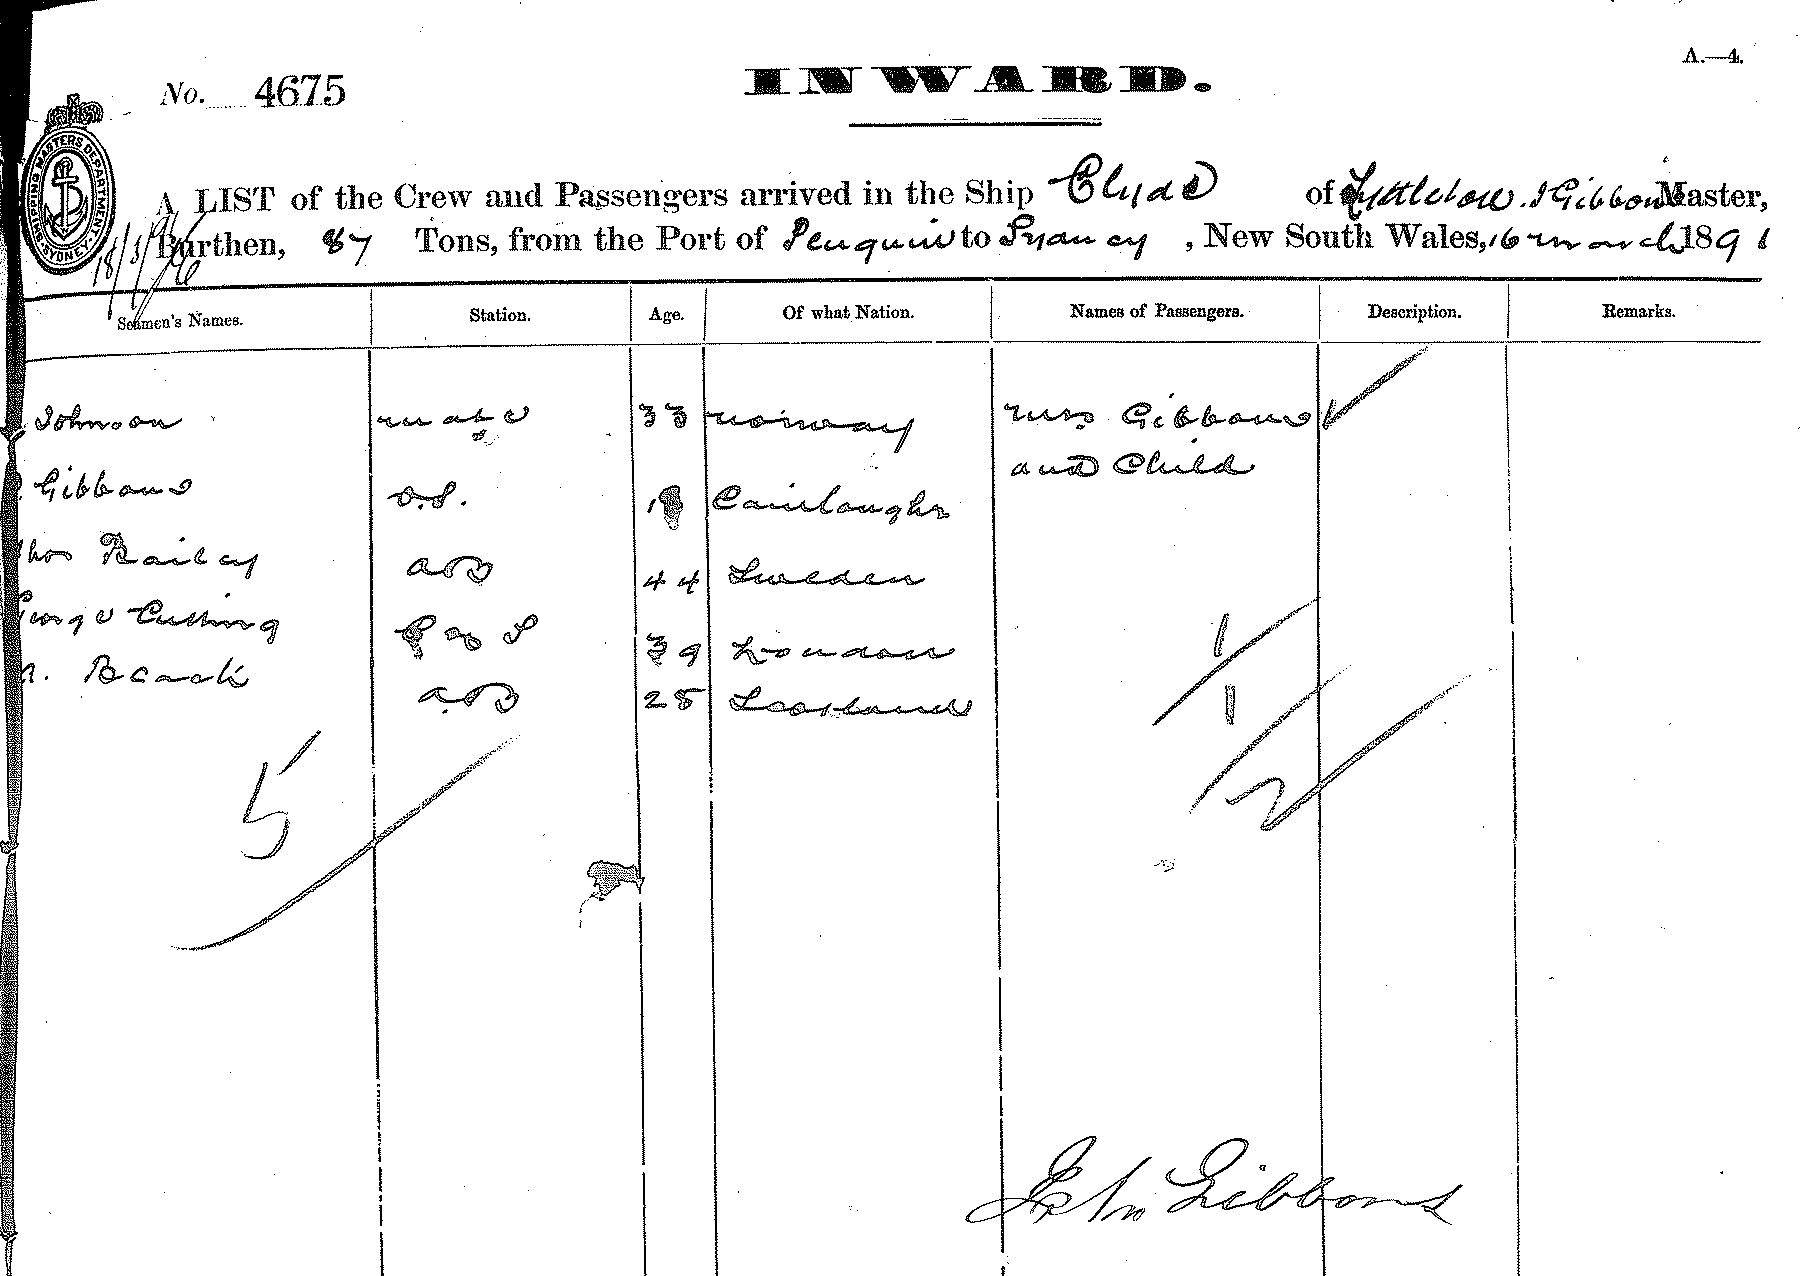 A.—4.
No. 4675
INWARD.
SHIPPING MASTERS DEPARTMENT SYDNEY
A LIST of the Crew and Passengers arrived in the Ship Clyde of Lyttleton. J Gibbons Master,
Burthen, 87 Tons, from the Port of Penguin to Sydney, New South Wales, 16 March 1891
Seamen's Names. Station. Age. Of what Nation. Names of Passengers. Description. Remarks.
Johnson mate 33 Norway Mrs Gibbons
and Child
Gibbons O.S. 18
Thos Bailey AB 44 Sweden
George Cutting 39 London
A. AB 28 Scotland
1
1
5 2
John Gibbons